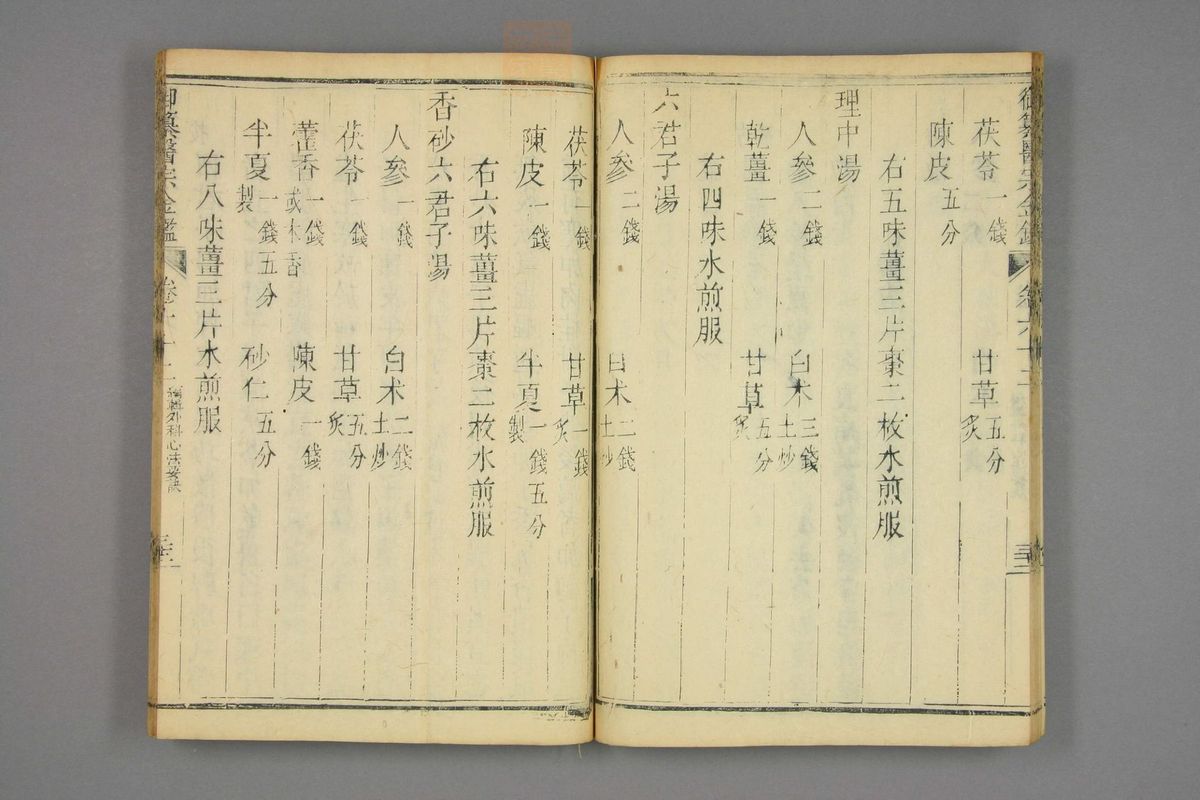 茯苓一錢 甘草五分炙
陳皮五分
右五味薑三片棗二枚水煎服
理中湯
人參二錢 白朮三錢土炒
乾薑一錢 甘草五分炙
右四味水煎服
六君子湯
人參二錢 白朮二錢土炒
茯苓一錢 甘草一錢炙
陳皮一錢 半夏一錢五分製
右六味薑三片棗二枚水煎服
香砂六君子湯
人參一錢 白朮二錢土炒
茯苓一錢 甘草五分炙
藿香一錢或木香 陳皮一錢
半夏一錢五分製 砂仁五分
右八味薑三片水煎服
御纂醫宗金鑑 卷六十二 編輯外科心法要訣